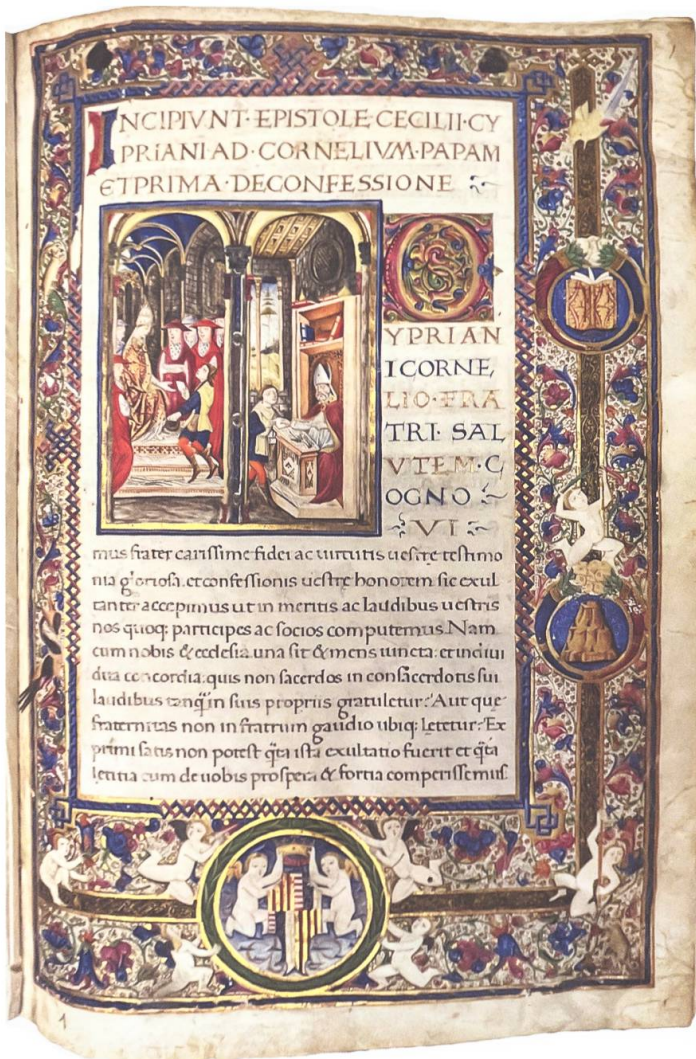 INCIPIVNT·EPISTOLE·CECILII·CY
PRIANI AD·CORNELIVM·PAPAM
ET PRIMA·DECONFESSIONE
C
YPRIAN
I CORNE,
LIO·FRA
TRI·SAL
VTEM·C
OGNO
VI
mus frater carissime fidei ac uirtutis uestre testimo
nia gloriosa. et confessionis uestrę honorem sic exul
tanter accepimus ut in meritis ac laudibus uestris
nos quoq; participes ac socios computemus. Nam
cum nobis & ecclesia una sit & mens iuncta: et indiui
dua concordia: quis non sacerdos in consacerdotis sui
laudibus tanq̃ in suis propriis gratuletur? Aut que
fraternitas non in fratrum gaudio ubiq; letetur? Ex
primi satis non potest q̃ta ista exultatio fuerit et q̃ta
letitia cum de uobis prospera & fortia comperissemus:
1